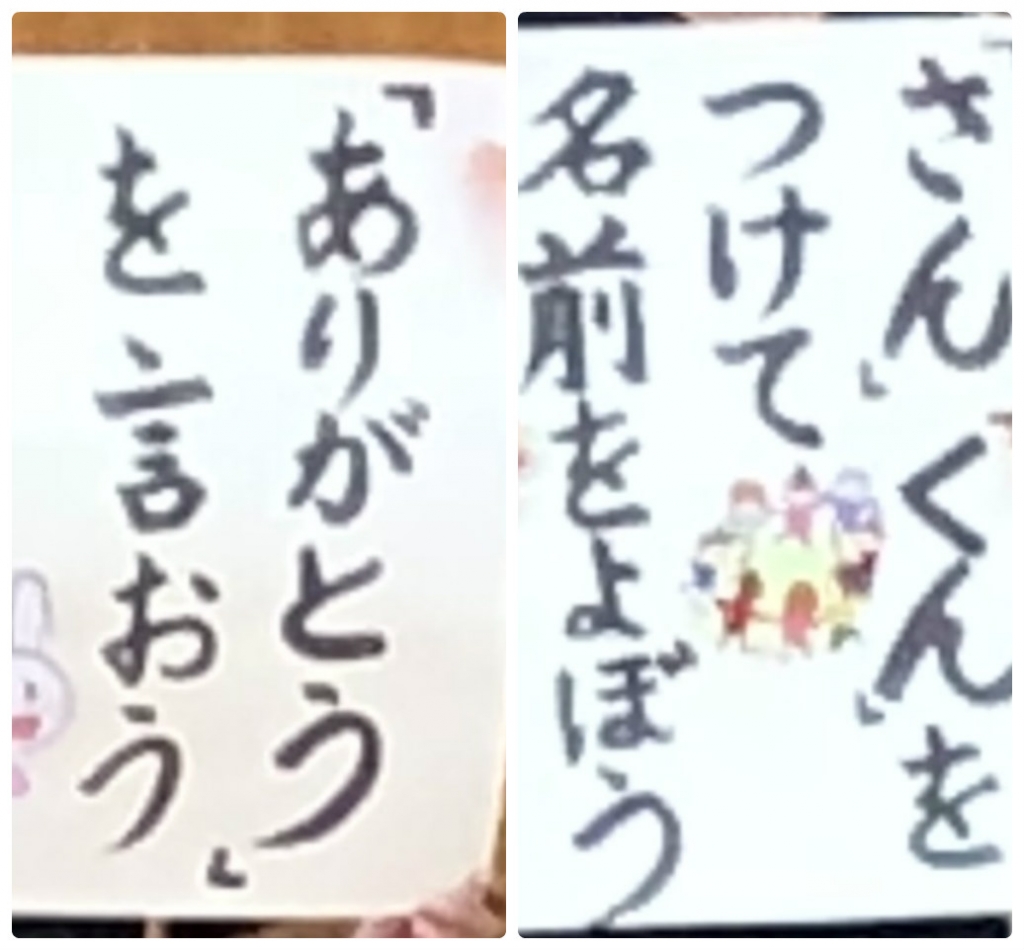 「ありがとう」
を言おう
「さん」「くん」を
つけて
名前をよぼう